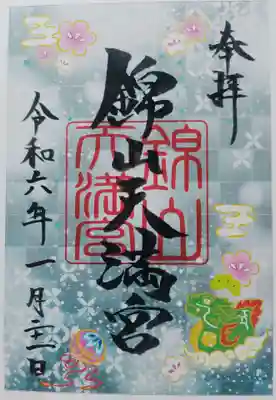 奉拝
錦山天満宮
令和六年一月二十一日
錦山
天満宮